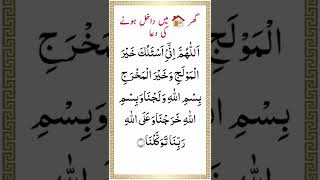 گھر 🏠 میں داخل ہونے
کی دعا
اَللّٰهُمَّ اِنِّیْ اَسْئَلُكَ خَيْرَ
الْمَوْلَجِ وَخَيْرَ الْمَخْرَجِ
بِسْمِ اللّٰهِ وَلَجْنَا وَبِسْمِ
اللّٰهِ خَرَجْنَا وَعَلَى اللّٰهِ
رَبِّنَا تَوَكَّلْنَا